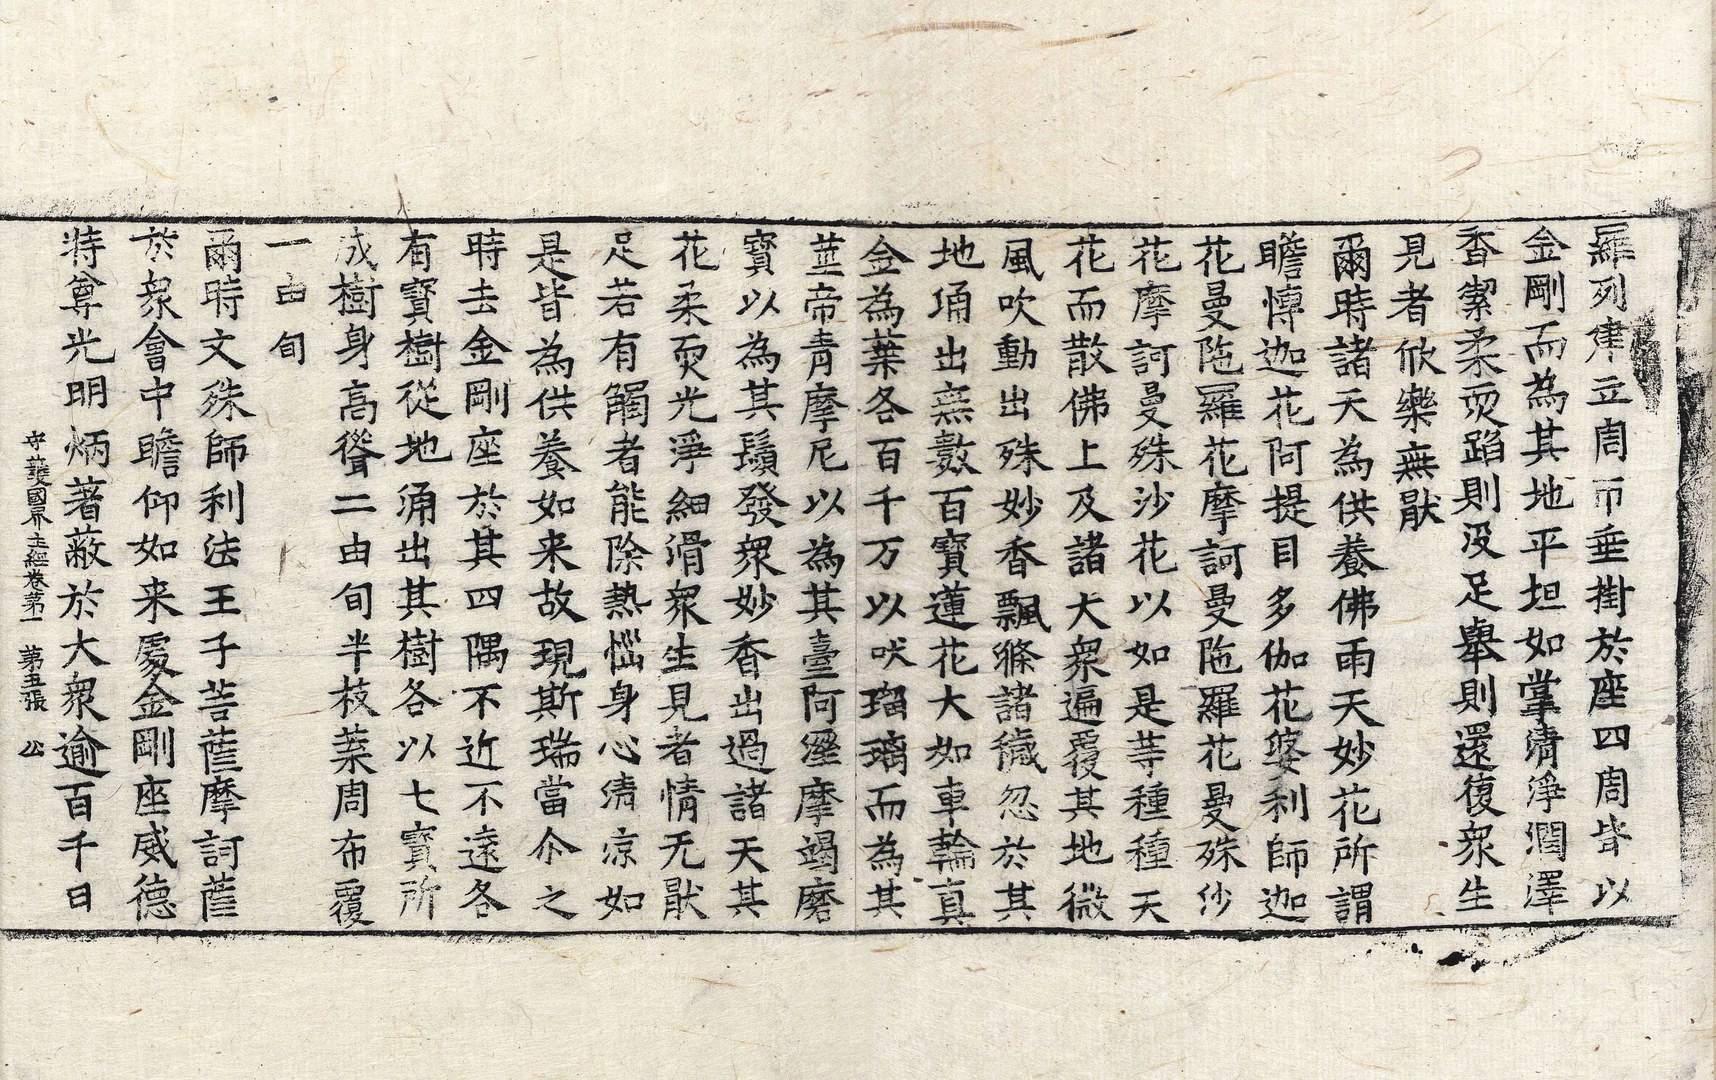 羅列建立周帀垂掛於座四周皆以
金剛而為其地平坦如掌清淨潤澤
香潔柔耎蹈則没足舉則還復眾生
見者欣樂無猒
爾時諸天為供養佛雨天妙花所謂
瞻慱迦花阿提目多伽花婆利師迦
花曼陁羅花摩訶曼陁羅花曼殊沙
花摩訶曼殊沙花以如是等種種天
花而散佛上及諸大眾遍覆其地微
風吹動出殊妙香飄滌諸穢忽於其
地涌出無數百寶蓮花大如車輪真
金為葉各百千万以吠瑠璃而為其
莖帝青摩尼以為其臺阿濕摩竭磨
寶以為其鬚發眾妙香出過諸天其
花柔耎光淨細滑眾生見者情无猒
足若有觸者能除熱惱身心清涼如
是皆為供養如来故現斯瑞當尒之
時去金剛座於其四隅不近不遠各
有寳樹從地涌出其樹各以七寶所
成樹身高聳二由旬半枝葉周布覆
一由旬
爾時文殊師利法王子菩薩摩訶薩
於眾會中瞻仰如来處金剛座威德
特尊光明炳著蔽於大眾逾百千日
守護國界主經卷第一 第五張 公